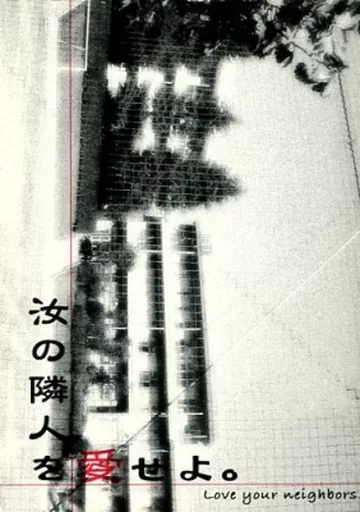 汝の隣人を愛せよ。
Love your neighbors.